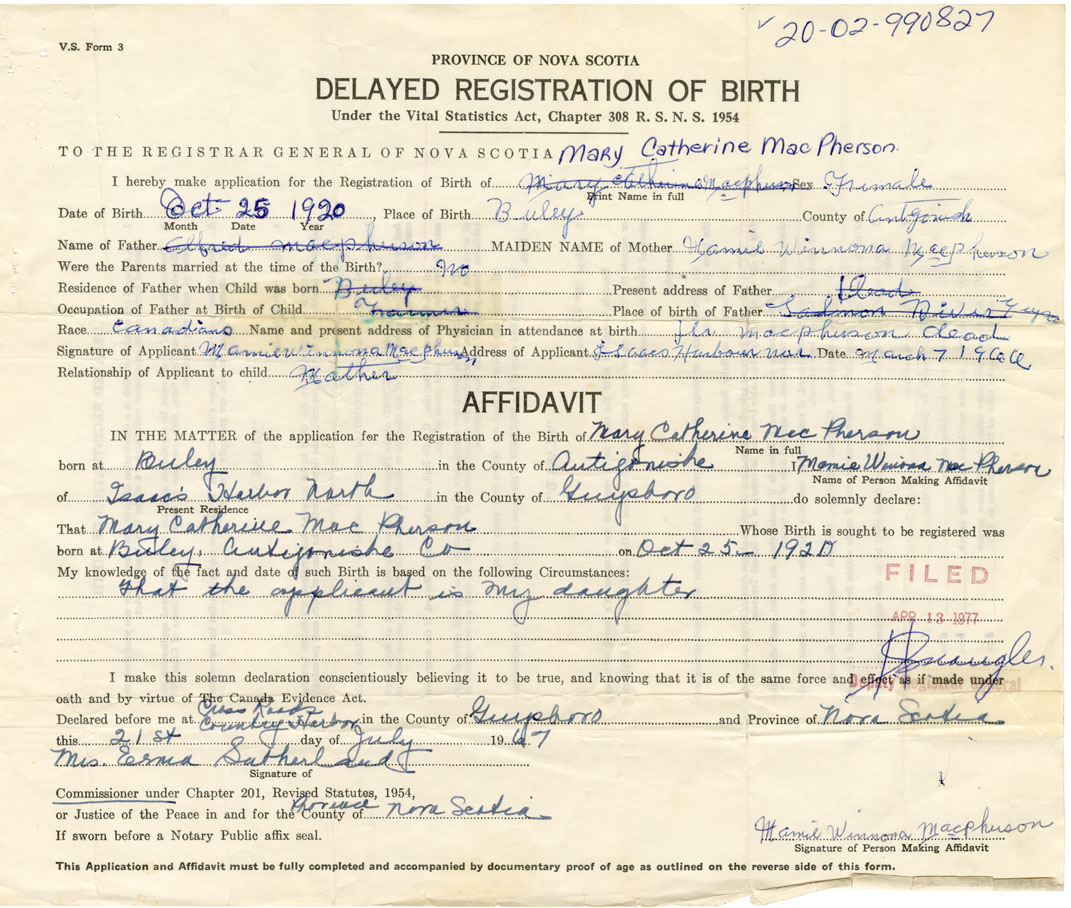 ✓ 20-02-990827
V.S. Form 3
PROVINCE OF NOVA SCOTIA
DELAYED REGISTRATION OF BIRTH
Under the Vital Statistics Act, Chapter 308 R. S. N. S. 1954
TO THE REGISTRAR GENERAL OF NOVA SCOTIA Mary Catherine MacPherson.
I hereby make application for the Registration of Birth of Mary Catherine Macpherson Sex Female
Print Name in full
Date of Birth Oct 25 1920, Place of Birth Buley County of Antigonish
Month Date Year
Name of Father Alfred macpherson MAIDEN NAME of Mother Mamie Winnona Macpherson
Were the Parents married at the time of the Birth? No
Residence of Father when Child was born Buley Present address of Father Dead
Occupation of Father at Birth of Child Farmer Place of birth of Father Salmon River Guys
Race Canadians Name and present address of Physician in attendance at birth macpherson dead
Signature of Applicant Mamie Winnona Macpherson, Address of Applicant Isaacs Harbour Nor. Date March 7 1966
Relationship of Applicant to child Mother
AFFIDAVIT
IN THE MATTER of the application for the Registration of the Birth of Mary Catherine Mac Pherson
Name in full
born at Buley in the County of Antigonishe I Mamie Winona Mac Pherson
Name of Person Making Affidavit
of Isaac's Harbor North in the County of Guysboro do solemnly declare:
Present Residence
That Mary Catherine Mac Pherson Whose Birth is sought to be registered was
born at Buley, Antigonishe Co on Oct 25 - 1920
My knowledge of the fact and date of such Birth is based on the following Circumstances:
That the applicant is my daughter
FILED
APR 13 1977
Deputy Registrar General
I make this solemn declaration conscientiously believing it to be true, and knowing that it is of the same force and effect as if made under
oath and by virtue of The Canada Evidence Act.
Cross Roads
Declared before me at Country Harbor in the County of Guysboro and Province of Nova Scotia
this 21st day of July 1967
Mrs. Erma Sutherland
Signature of
Commissioner under Chapter 201, Revised Statutes, 1954,
or Justice of the Peace in and for the County of Province Nova Scotia
If sworn before a Notary Public affix seal.
Mamie Winnona Macpherson
Signature of Person Making Affidavit
This Application and Affidavit must be fully completed and accompanied by documentary proof of age as outlined on the reverse side of this form.